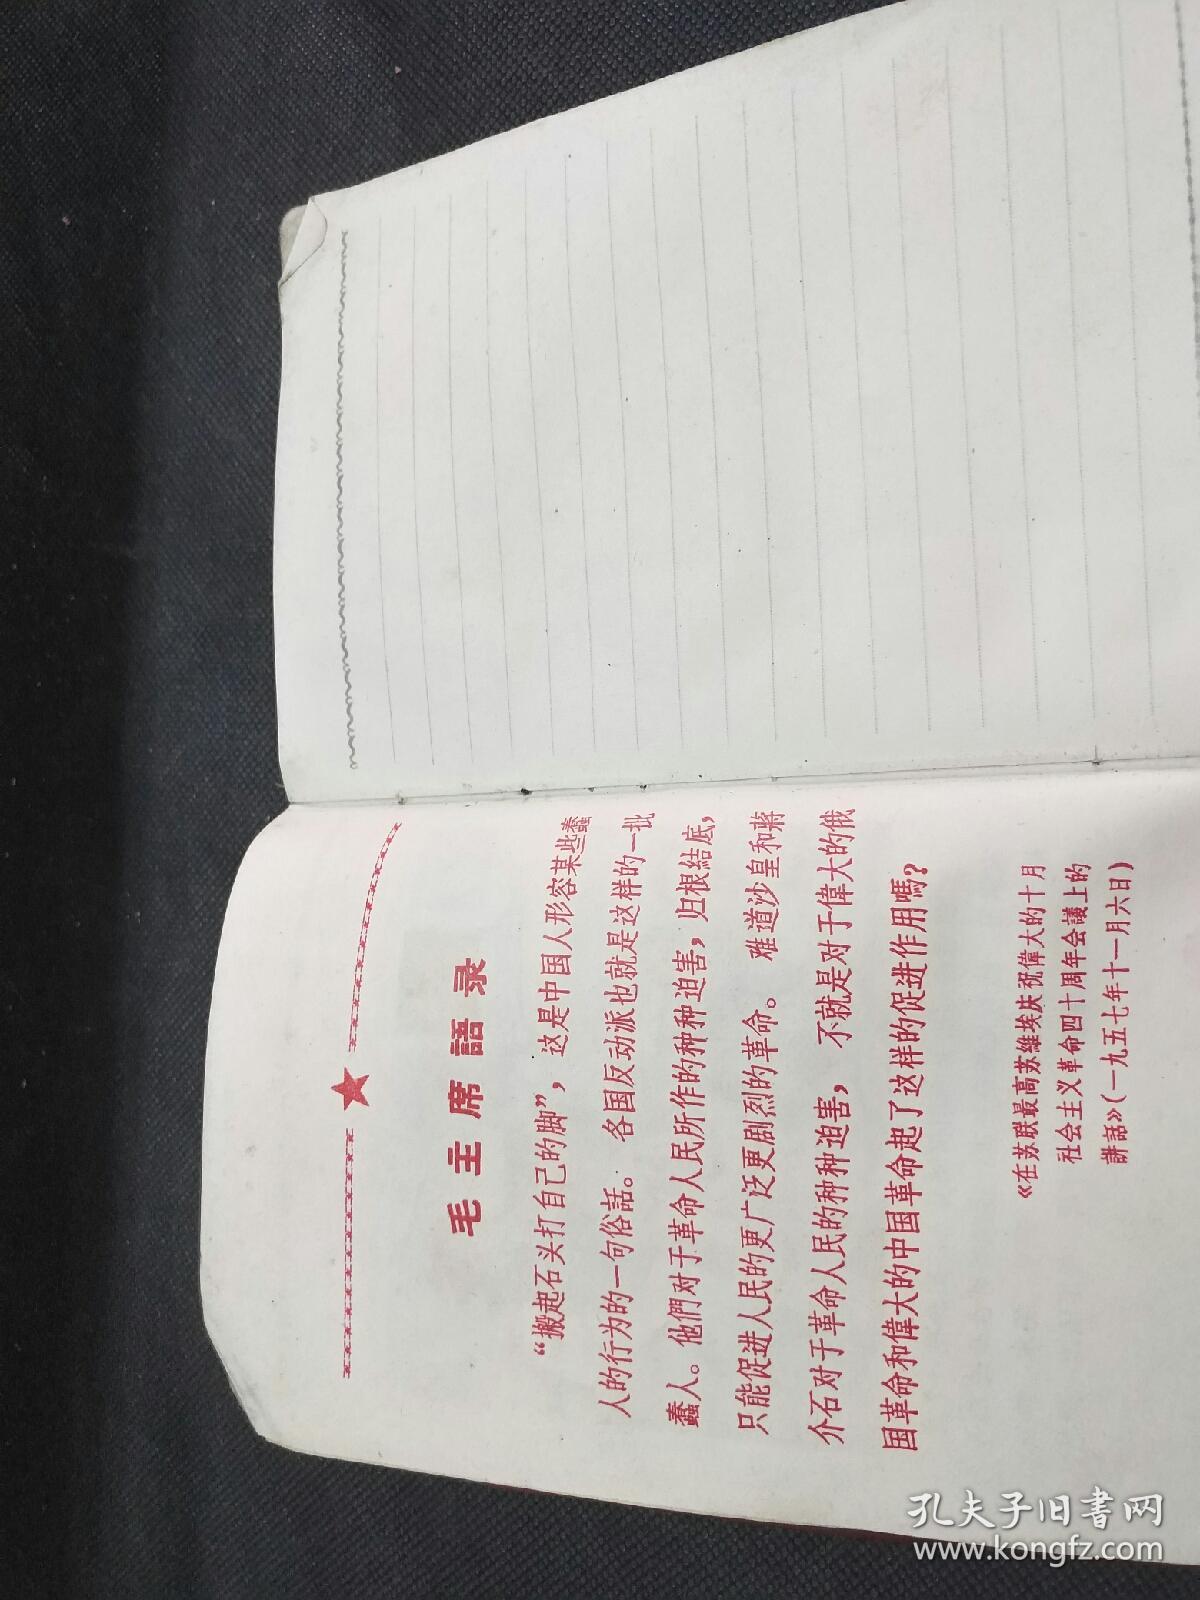 毛主席語录
“搬起石头打自己的脚”，这是中国人形容某些蠢
人的行为的一句俗話。各国反动派也就是这样的一批
蠢人。他們对于革命人民所作的种种迫害，归根結底，
只能促进人民的更广泛更剧烈的革命。难道沙皇和蔣
介石对于革命人民的种种迫害，不就是对于偉大的俄
国革命和偉大的中国革命起了这样的促进作用嗎？
《在苏联最高苏維埃庆祝偉大的十月
社会主义革命四十周年会議上的
講話》(一九五七年十一月六日)
孔夫子旧書网
www.kongfz.com